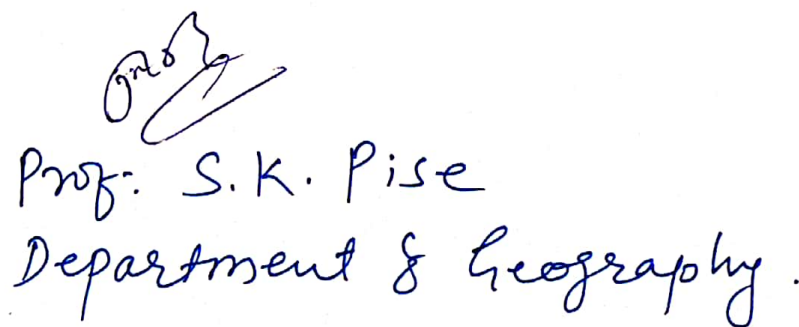 Prof. S.K. Pise
Department of Geography.